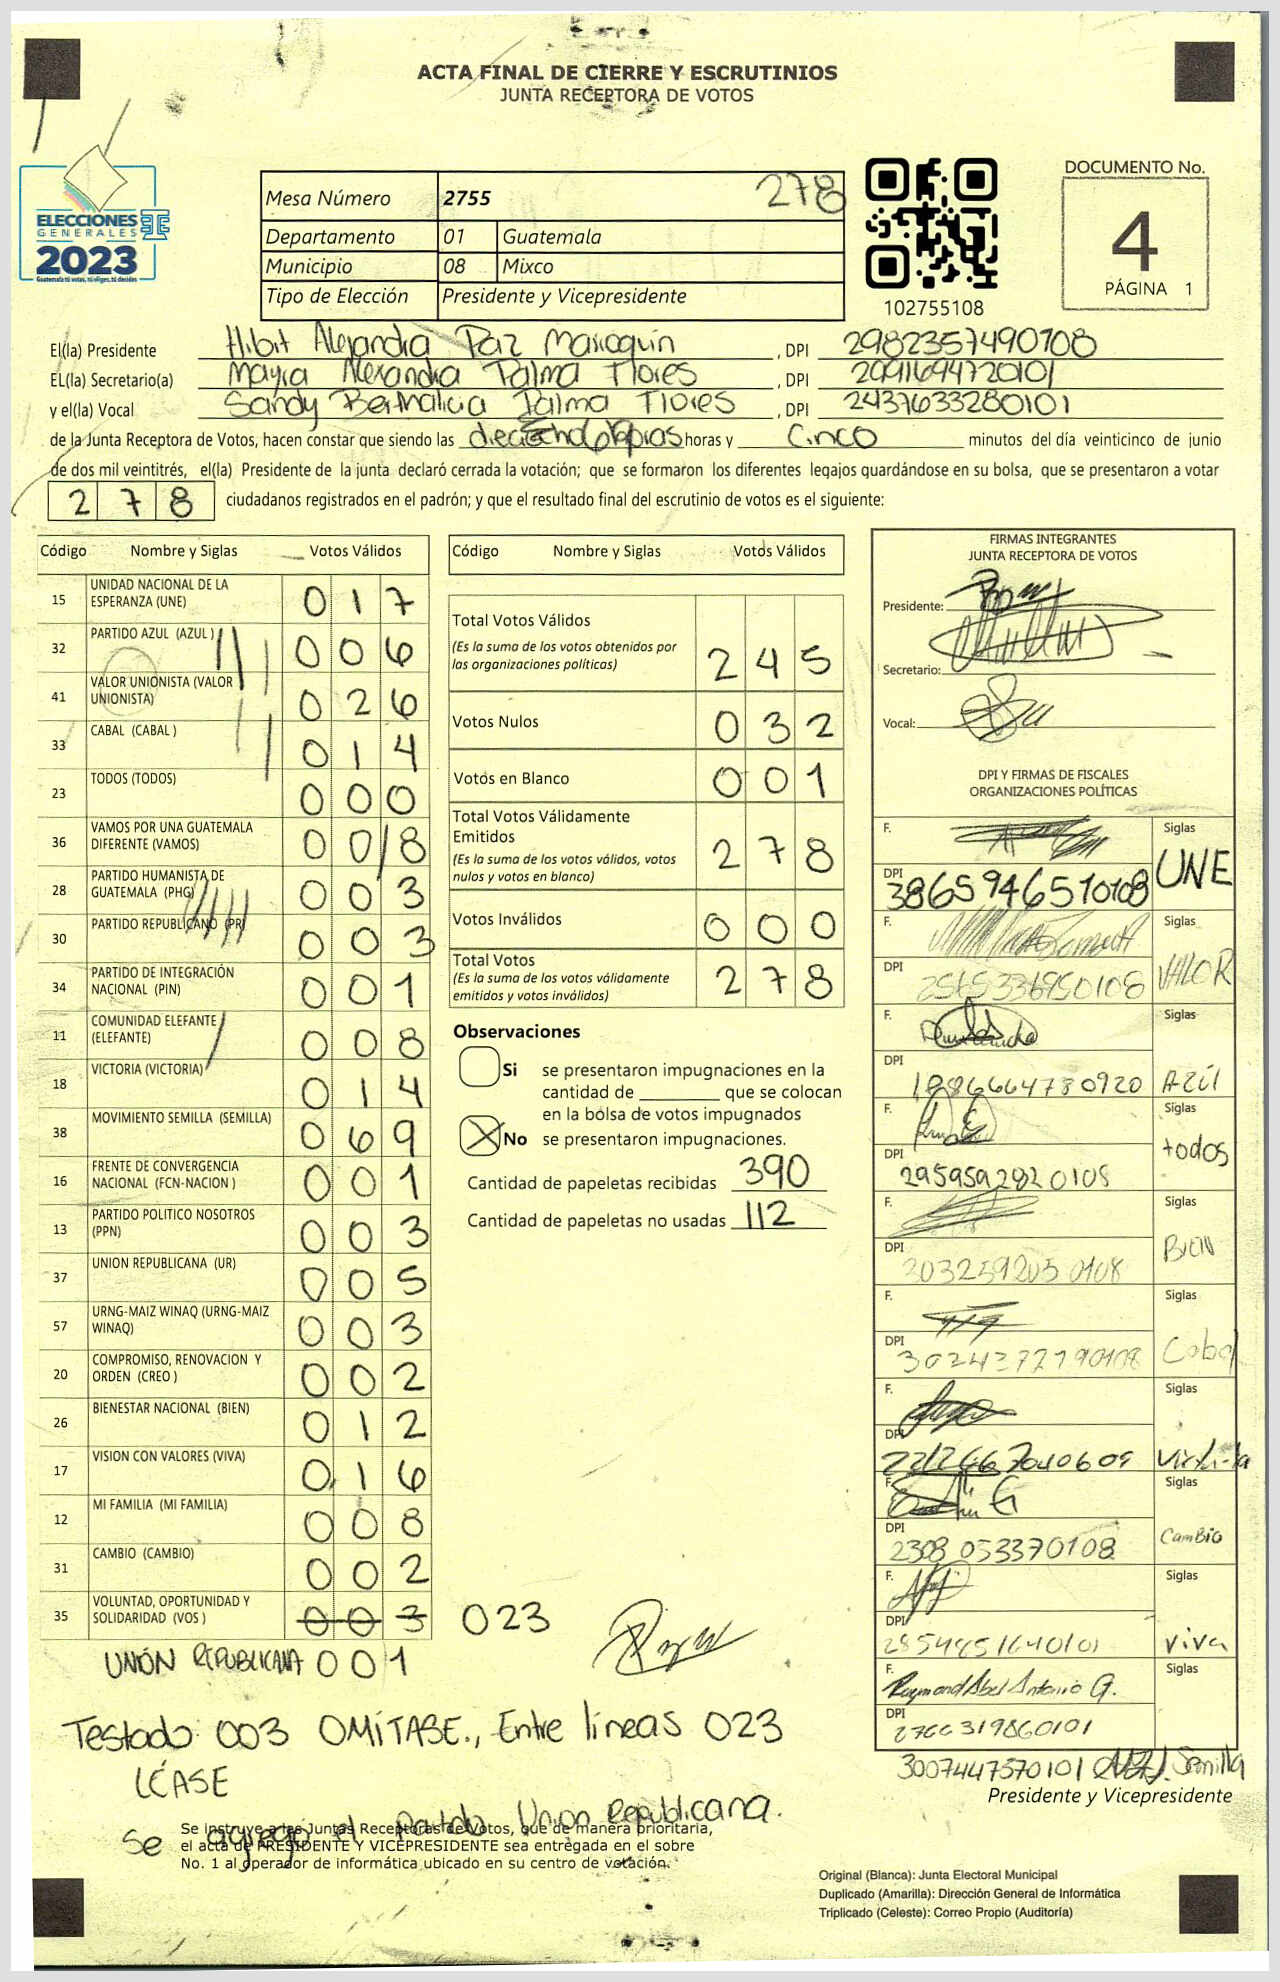 ACTA FINAL DE CIERRE Y ESCRUTINIOS
JUNTA RECEPTORA DE VOTOS
ELECCIONES
GENERALES
2023
Guatemala tú votas, tú eliges, tú decides
Mesa Número 2755 278
Departamento 01 Guatemala
Municipio 08 Mixco
Tipo de Elección Presidente y Vicepresidente
102755108
DOCUMENTO No.
4
PÁGINA 1
El(la) Presidente Hibit Alejandra Paz Marroquín , DPI 2982357490108
EL(la) Secretario(a) Mayra Alexandra Palma Flores , DPI 2091694720101
y el(la) Vocal Sandy Berthalicia Palma Flores , DPI 2437633280101
de la Junta Receptora de Votos, hacen constar que siendo las horas y cinco minutos del día veinticinco de junio
de dos mil veintitrés, el(la) Presidente de la junta declaró cerrada la votación; que se formaron los diferentes legajos quardándose en su bolsa, que se presentaron a votar
278 ciudadanos registrados en el padrón; y que el resultado final del escrutinio de votos es el siguiente:
Código Nombre y Siglas Votos Válidos
15 UNIDAD NACIONAL DE LA ESPERANZA (UNE) 017
32 PARTIDO AZUL (AZUL ) 006
41 VALOR UNIONISTA (VALOR UNIONISTA) 026
33 CABAL (CABAL ) 014
23 TODOS (TODOS) 000
36 VAMOS POR UNA GUATEMALA DIFERENTE (VAMOS) 00/8
28 PARTIDO HUMANISTA DE GUATEMALA (PHG) 003
30 PARTIDO REPUBLICANO (PR) 003
34 PARTIDO DE INTEGRACIÓN NACIONAL (PIN) 001
11 COMUNIDAD ELEFANTE (ELEFANTE) 008
18 VICTORIA (VICTORIA) 014
38 MOVIMIENTO SEMILLA (SEMILLA) 069
16 FRENTE DE CONVERGENCIA NACIONAL (FCN-NACION ) 001
13 PARTIDO POLITICO NOSOTROS (PPN) 003
37 UNION REPUBLICANA (UR) 005
57 URNG-MAIZ WINAQ (URNG-MAIZ WINAQ) 003
20 COMPROMISO, RENOVACION Y ORDEN (CREO ) 002
26 BIENESTAR NACIONAL (BIEN) 012
17 VISION CON VALORES (VIVA) 016
12 MI FAMILIA (MI FAMILIA) 008
31 CAMBIO (CAMBIO) 002
35 VOLUNTAD, OPORTUNIDAD Y SOLIDARIDAD (VOS ) 003 023
UNIÓN REPUBLICANA 001
Código Nombre y Siglas Votos Válidos
Total Votos Válidos 245
(Es la suma de los votos obtenidos por
las organizaciones políticas)
Votos Nulos 032
Votos en Blanco 001
Total Votos Válidamente
Emitidos 278
(Es la suma de los votos válidos, votos
nulos y votos en blanco)
Votos Inválidos 000
Total Votos 278
(Es la suma de los votos válidamente
emitidos y votos inválidos)
Observaciones
Si se presentaron impugnaciones en la
cantidad de ________ que se colocan
en la bolsa de votos impugnados
No se presentaron impugnaciones.
Cantidad de papeletas recibidas 390
Cantidad de papeletas no usadas 112
FIRMAS INTEGRANTES
JUNTA RECEPTORA DE VOTOS
Presidente:
Secretario:
Vocal:
DPI Y FIRMAS DE FISCALES
ORGANIZACIONES POLÍTICAS
F. Siglas UNE
DPI 3865946510108
F. Siglas VALOR
DPI
F. Siglas AZUL
DPI 1986664730920
F. Siglas todos
DPI 2959592820108
F. Siglas BIEN
DPI 3032592050108
F. Siglas Cabal
DPI 3024372790108
F. Siglas
DPI
F. Siglas Cambio
DPI 2308053370108
F. Siglas viva
DPI 2854851640101
F. Raymond Abel Antonio G. Siglas
DPI 2766319860101
3007447570101 Semilla
Presidente y Vicepresidente
Testado 003 OMÍTASE., Entre líneas 023
LÉASE
Se agregó el Partido Union Republicana.
Se instruye a las Juntas Receptoras de Votos, que de manera prioritaria,
el acta de PRESIDENTE Y VICEPRESIDENTE sea entregada en el sobre
No. 1 al operador de informática ubicado en su centro de votación.
Original (Blanca): Junta Electoral Municipal
Duplicado (Amarilla): Dirección General de Informática
Triplicado (Celeste): Correo Propio (Auditoría)